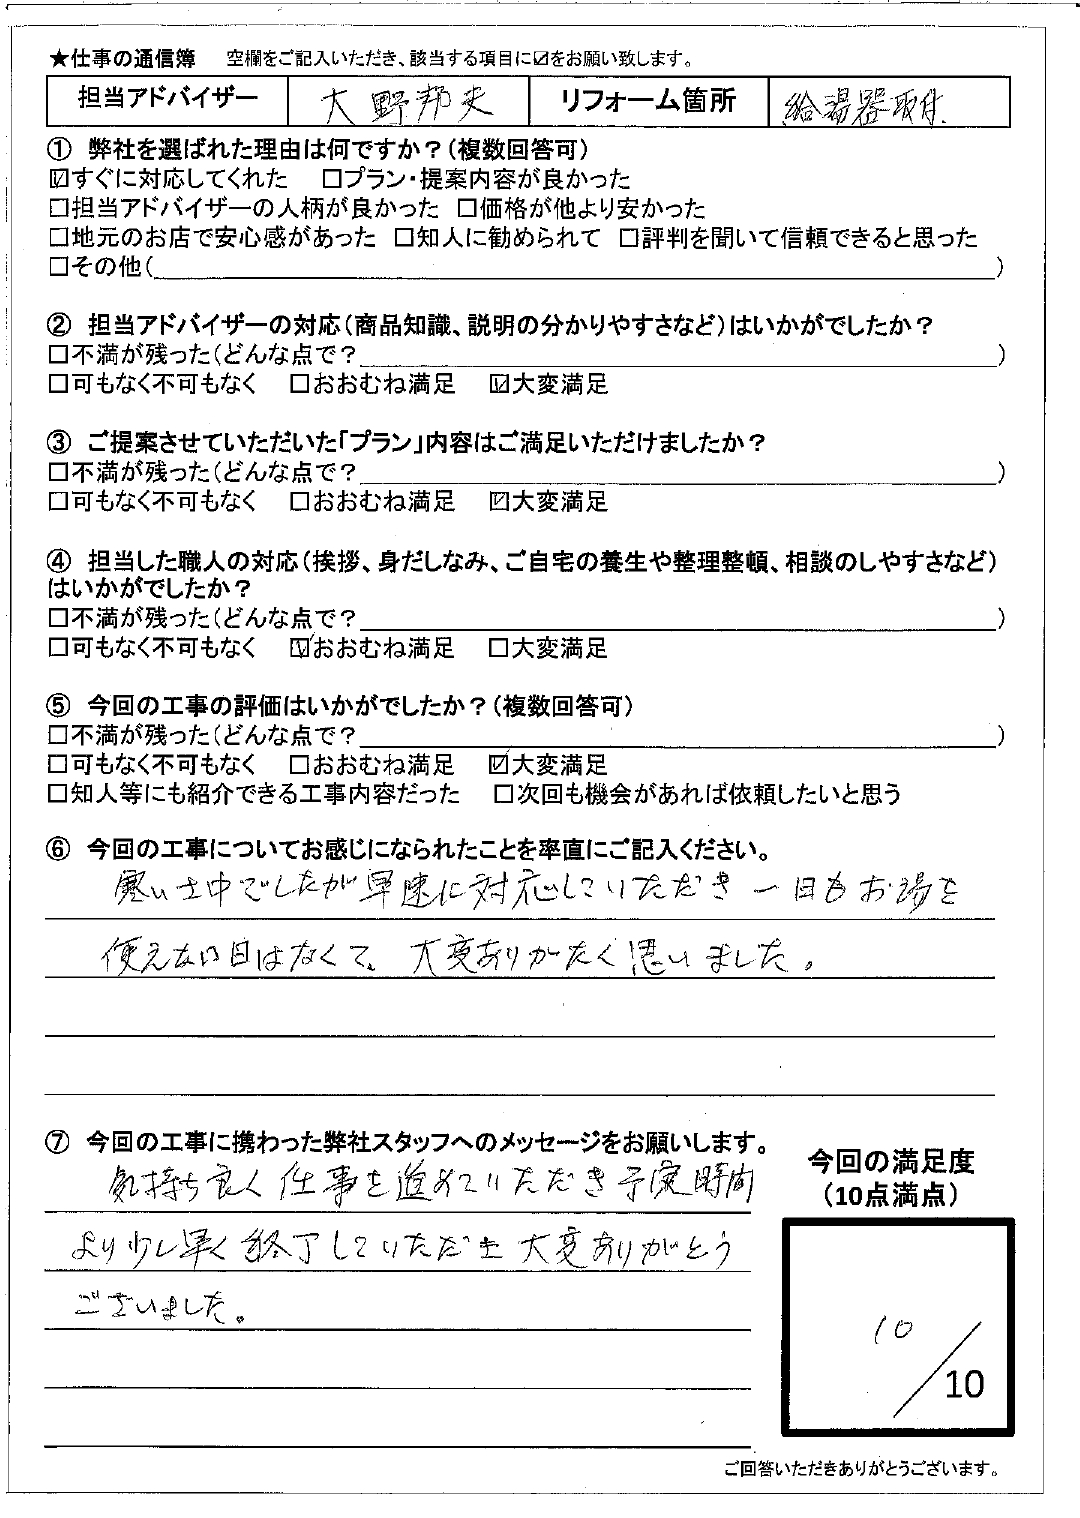 ★仕事の通信簿 空欄をご記入いただき、該当する項目に☑をお願い致します。
担当アドバイザー 大野邦夫 リフォーム箇所 給湯器取付.
① 弊社を選ばれた理由は何ですか？(複数回答可)
☑すぐに対応してくれた □プラン・提案内容が良かった
□担当アドバイザーの人柄が良かった □価格が他より安かった
□地元のお店で安心感があった □知人に勧められて □評判を聞いて信頼できると思った
□その他( )
② 担当アドバイザーの対応(商品知識、説明の分かりやすさなど)はいかがでしたか？
□不満が残った(どんな点で? )
□可もなく不可もなく □おおむね満足 ☑大変満足
③ ご提案させていただいた「プラン」内容はご満足いただけましたか？
□不満が残った(どんな点で? )
□可もなく不可もなく □おおむね満足 ☑大変満足
④ 担当した職人の対応(挨拶、身だしなみ、ご自宅の養生や整理整頓、相談のしやすさなど)
はいかがでしたか？
□不満が残った(どんな点で? )
□可もなく不可もなく ☑おおむね満足 □大変満足
⑤ 今回の工事の評価はいかがでしたか？(複数回答可)
□不満が残った(どんな点で? )
□可もなく不可もなく □おおむね満足 ☑大変満足
□知人等にも紹介できる工事内容だった □次回も機会があれば依頼したいと思う
⑥ 今回の工事についてお感じになられたことを率直にご記入ください。
寒い中でしたが早速に対応していただき一日もお湯を
使えない日はなくて、大変ありがたく思いました。
⑦ 今回の工事に携わった弊社スタッフへのメッセージをお願いします。
気持ち良く仕事を進めていただき予定時間
より少し早く終了していただき大変ありがとう
ございました。
今回の満足度
(10点満点)
10/10
ご回答いただきありがとうございます。